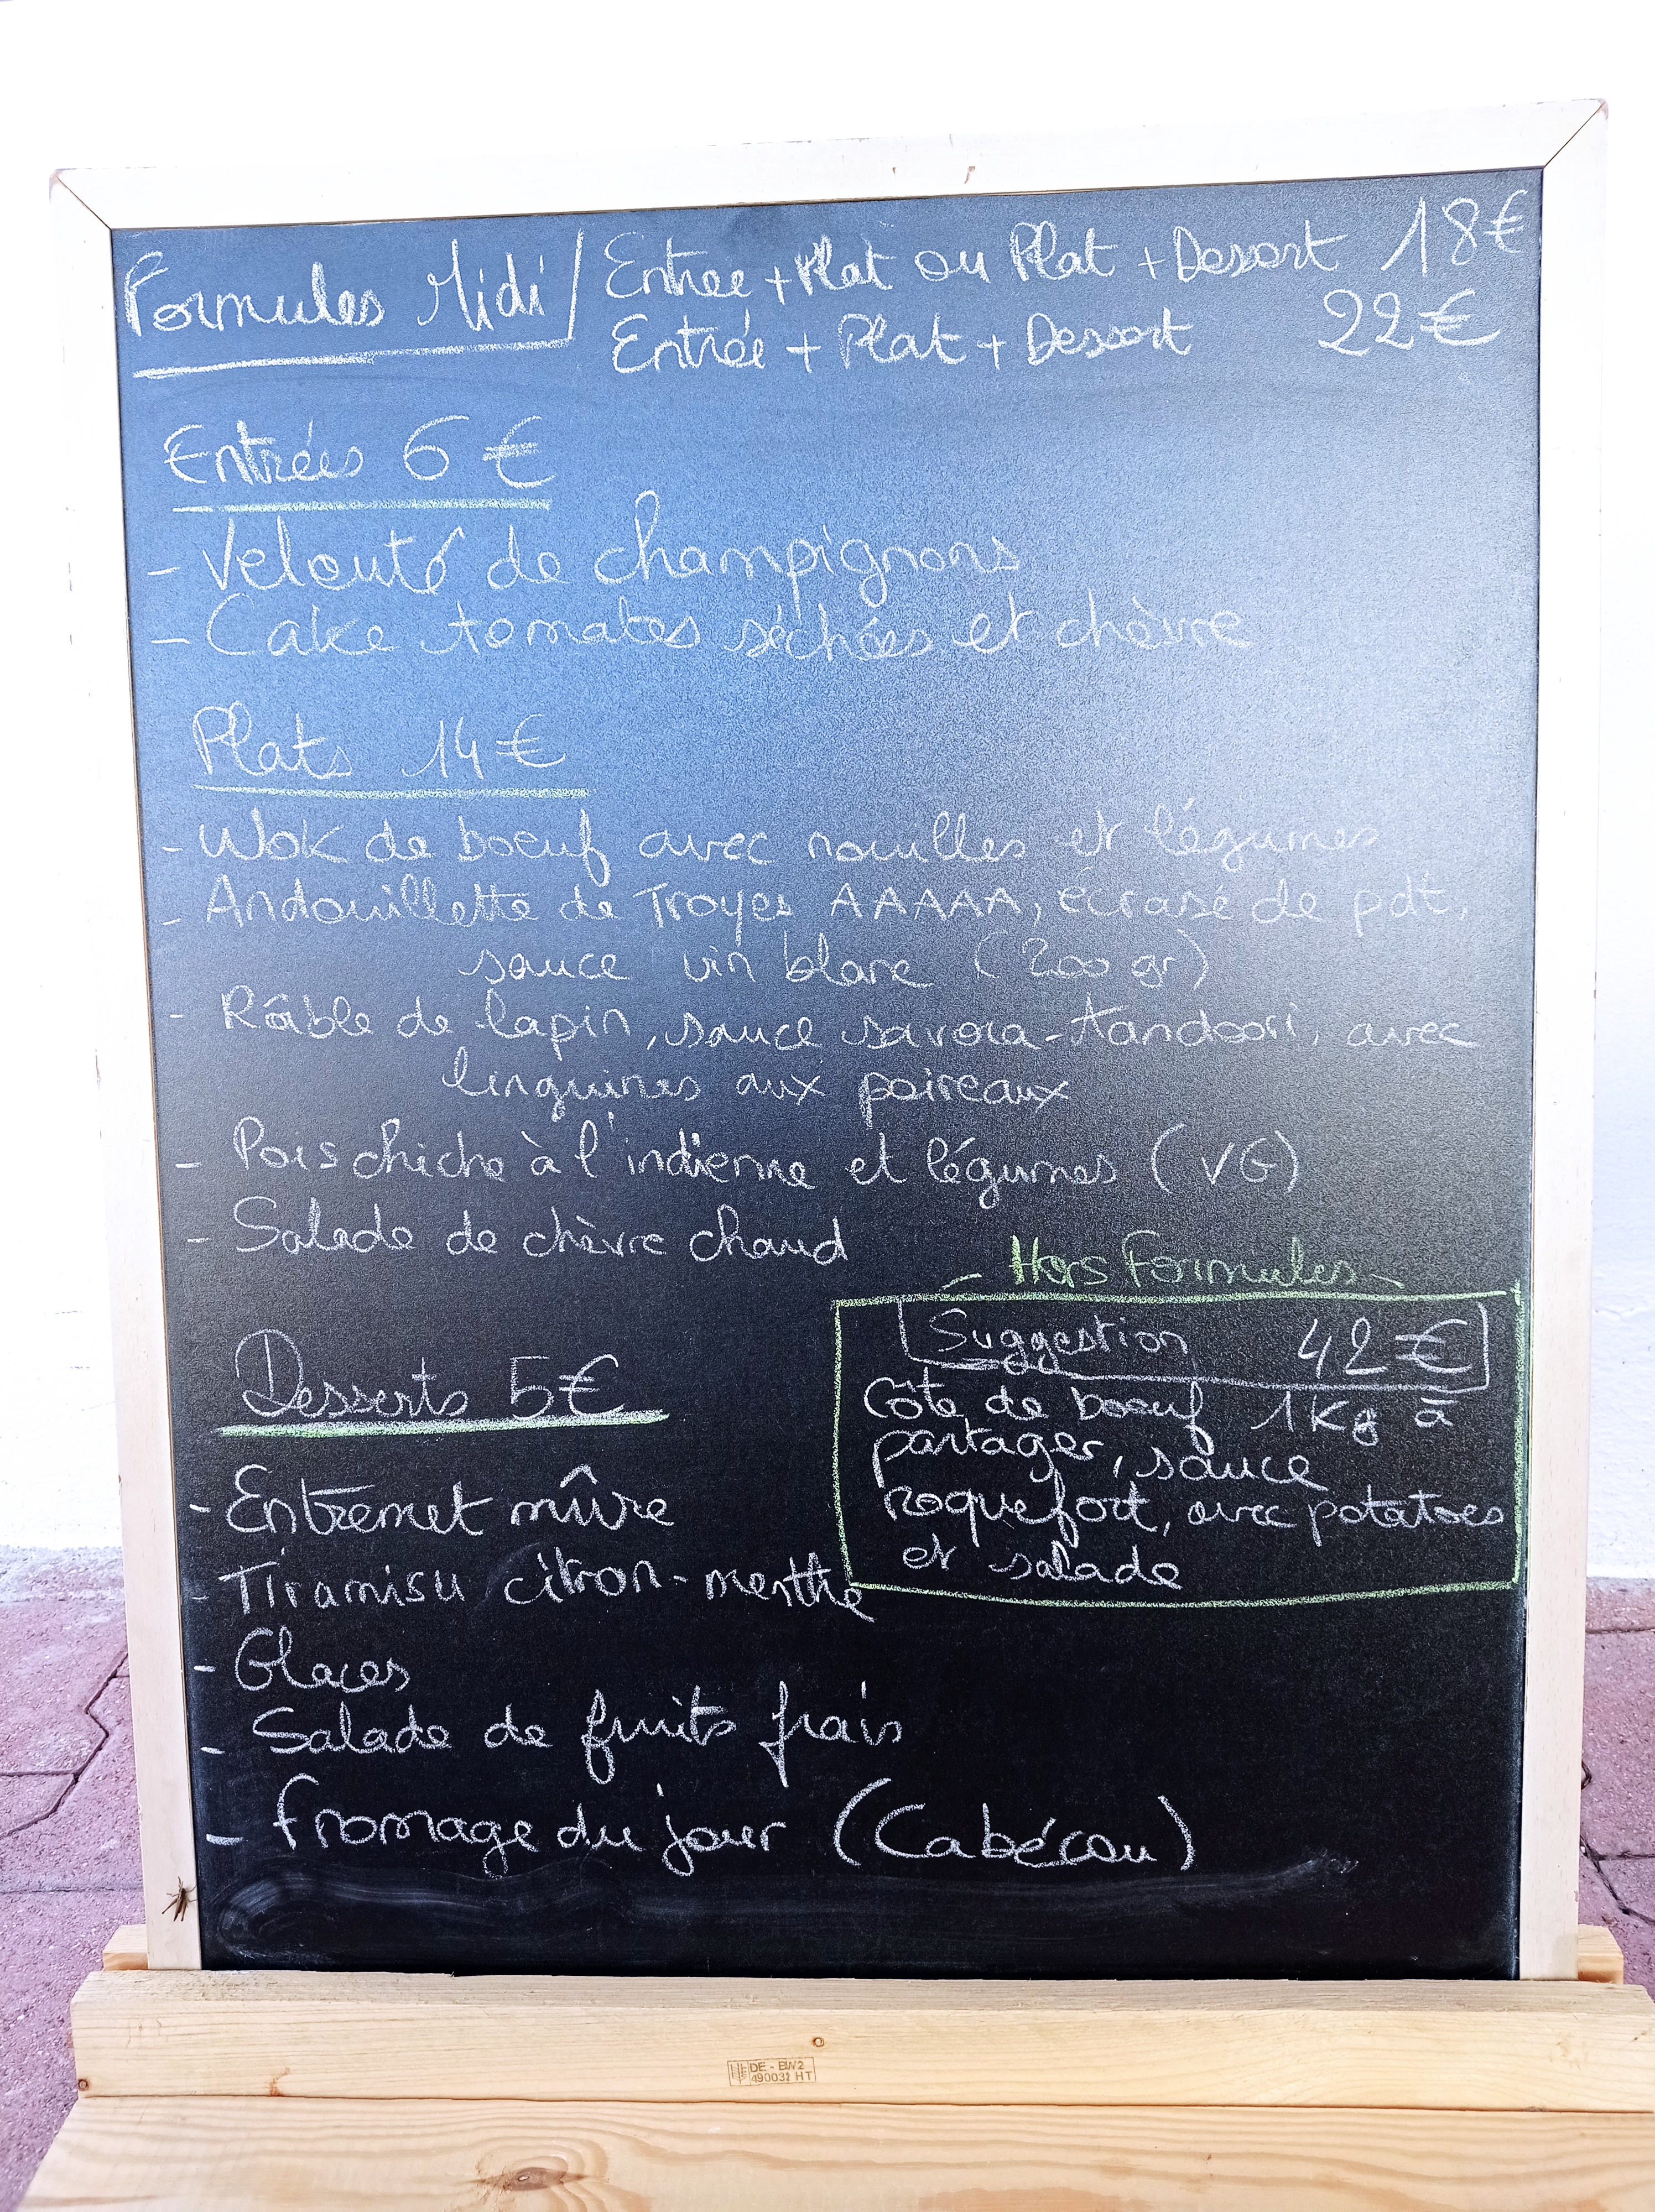 Formules Midi / Entrée + Plat ou Plat + Dessert 18€
Entrée + Plat + Dessert 22€
Entrées 6€
- Velouté de champignons
- Cake tomates séchées et chèvre
Plats 14€
- Wok de boeuf avec nouilles et légumes
- Andouillette de Troyes AAAAA, écrasé de pdt,
sauce vin blanc (200 gr)
- Râble de lapin, sauce savora-tandoori, avec
linguines aux poireaux
- Pois chiche à l'indienne et légumes (VG)
- Salade de chèvre chaud
- Hors Formules -
Suggestion 42€
Côte de boeuf 1Kg à
partager, sauce
roquefort, avec potatoes
et salade
Desserts 5€
- Entremet mûre
- Tiramisu citron-menthe
- Glaces
- Salade de fruits frais
- Fromage du jour (Cabécou)
DE - BW2
490032 HT